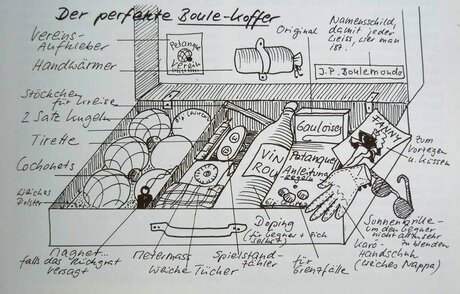 Der perfekte Boule-Koffer
Vereins-
Aufkleber
Handwärmer
Stöckchen
für Kreise
2 Satz Kugeln
Tirette
Cochonets
weiches
Polster
Petanque
Verein
Original
Namensschild,
damit jeder
weiss, wer man
ist.
J.P. Boulemondo
Gauloises
VIN
ROU
Petanque
Anleitung
Regeln
FANNY
zum
Vorzeigen
u. Küssen
Magnet
falls das Rückgrat
versagt
Metermass
weiche Tücher
Spielstand-
zähler
Doping
(für Gegner + sich
selbst)
für
Grenzfälle
Sonnenbrille
um den Gegner
nicht allzu sehr
zu blenden
Karo-
Handschuh
(weiches Nappa)